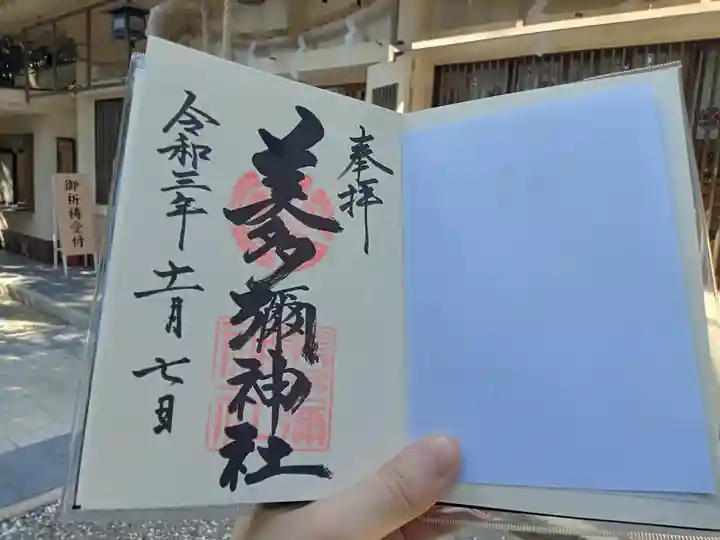 奉拝
美多彌神社
令和三年十一月七日
御祈祷受付